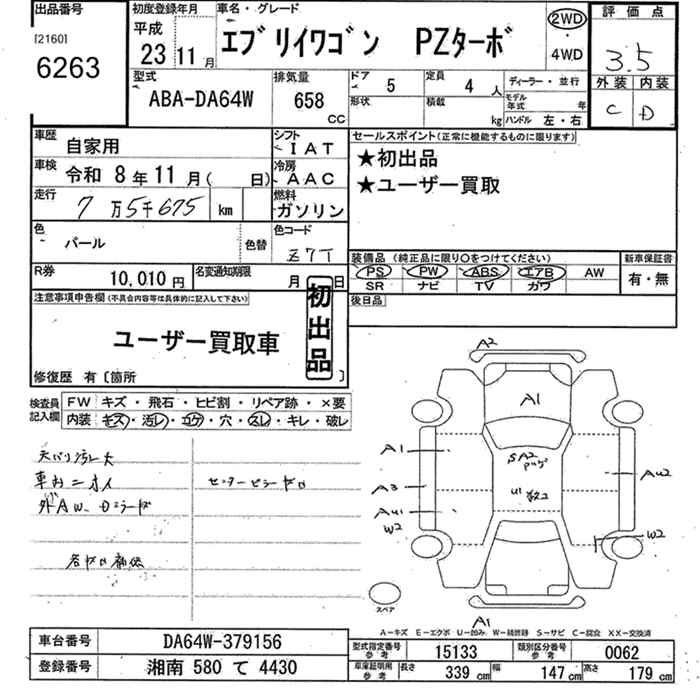 出品番号
[2160]
6263
初度登録年月
平成
23 年 11 月
車名・グレード
エブリイワゴン PZターボ
2WD
・
4WD
評価点
3.5
外装 内装
C D
型式
ABA-DA64W
排気量
658
CC
ドア
5
定員
4 人
形状
積載
kg
ディーラー・並行
モデル年式 年
ハンドル 左・右
車歴 自家用
車検 令和 8年 11月( 日)
走行 7万5千675 km
シフト IAT
冷房 AAC
燃料 ガソリン
色 パール
色替
色コード Z7T
R券 10,010円
名変通知期限 月 日
セールスポイント(正常に機能するものに限ります)
★初出品
★ユーザー買取
装備品 (純正品に限り〇をつけてください)
PS PW ABS エアB AW
SR ナビ TV カワ
新車保証書
有・無
後日品
注意事項申告欄(不具合内容等は具体的に記入して下さい)
ユーザー買取車
初出品
修復歴 有〔箇所 〕
検査員記入欄
FW キズ・飛石・ヒビ割・リペア跡・×要
内装 キズ・汚レ・コゲ・穴・スレ・キレ・破レ
天バリ汚レ大
車内ニオイ
センターピラーサビ
A2
A1
A1
A3
AU1
W2
SA2
U1
AU2
W2
A1
スペア
A−キズ E−エクボ U−凹み W−補修跡 S−サビ C−腐食 XX−交換済
車台番号 DA64W-379156
登録番号 湘南 580 て 4430
型式指定番号 参考 15133
類別区分番号 参考 0062
車庫証明用 参考 長さ 339 cm 幅 147 cm 高さ 179 cm